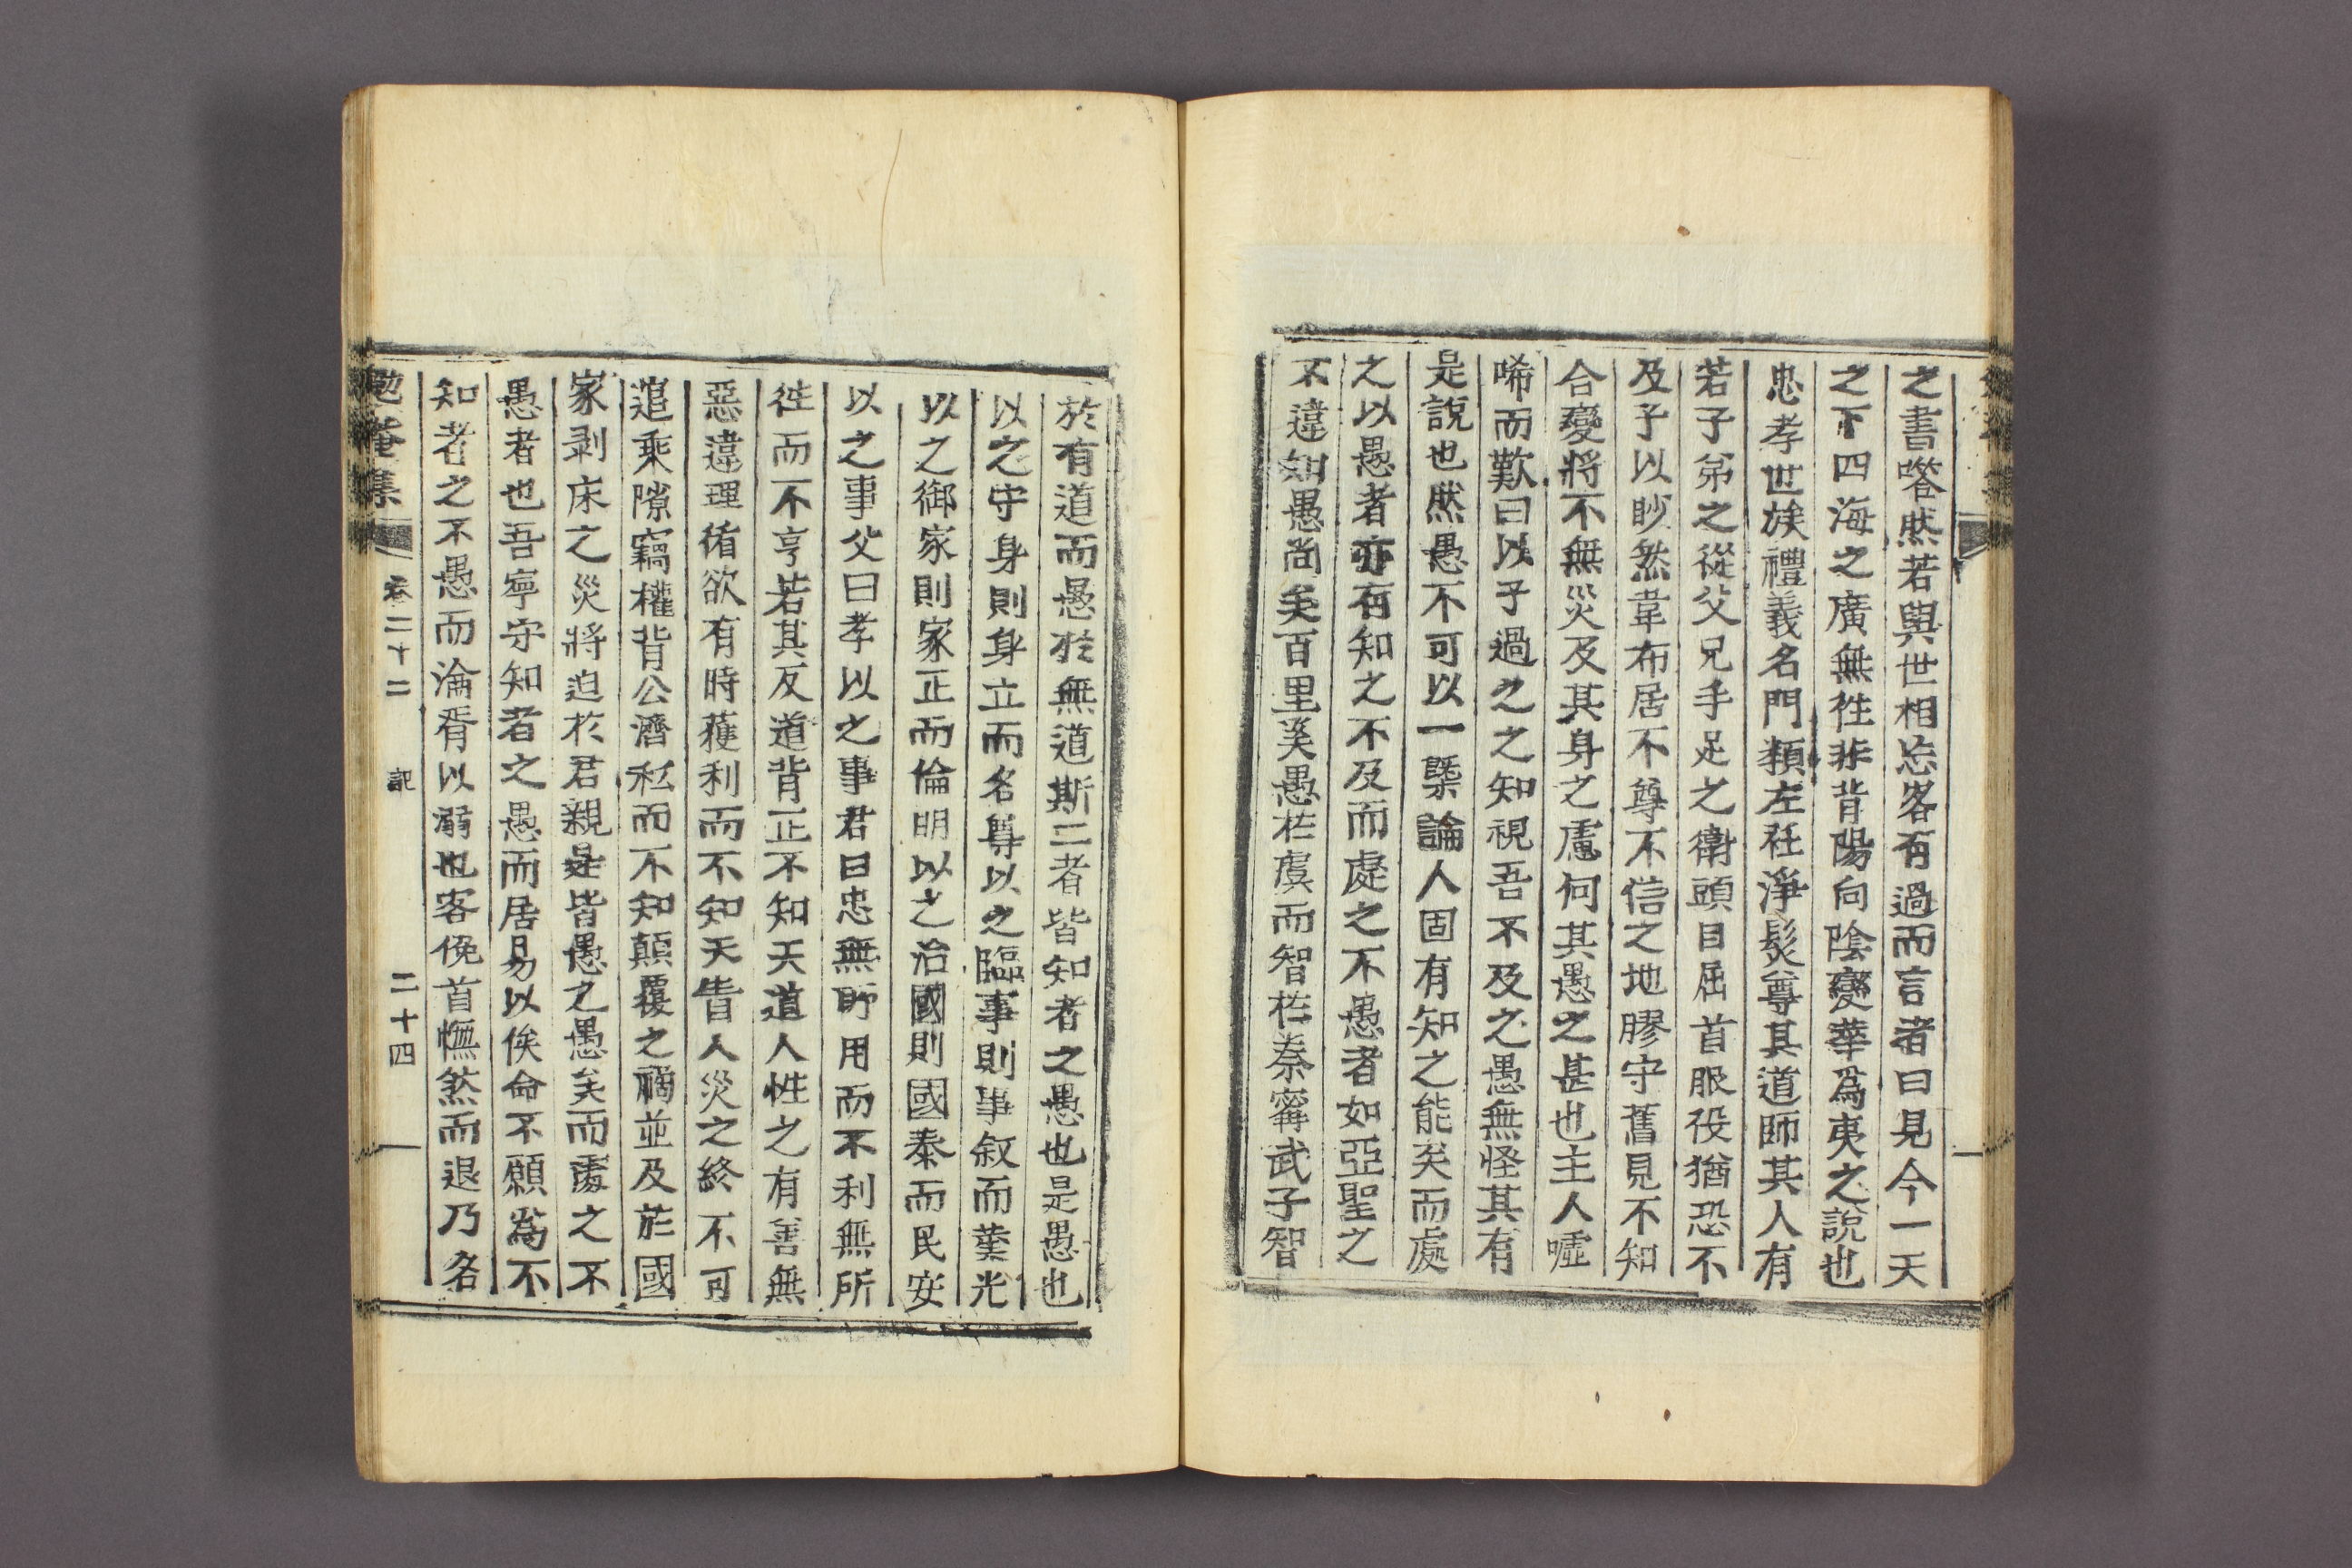 之書嗒然若與世相忘客有過而言者曰見今一天
之下四海之廣無徃非背陽向陰變華爲夷之說也
忠孝世族禮義名門類左衽淨髮尊其道師其人有
若子弟之從父兄手足之衛頭目屈首服役猶恐不
及子以眇然韋布居不尊不信之地膠守舊見不知
合變將不無災及其身之慮何其愚之甚也主人噓
唏而歎曰以子過之之知視吾不及之愚無怪其有
是說也然愚不可以一槩論人固有知之能矣而處
之以愚者亦有知之不及而處之不愚者如亞聖之
不違如愚尚矣百里奚愚於虞而智於秦甯武子智
於有道而愚於無道斯二者皆知者之愚也是愚也
以之守身則身立而名尊以之臨事則事叙而業光
以之御家則家正而倫明以之治國則國泰而民安
以之事父曰孝以之事君曰忠無所用而不利無所
徃而不亨若其反道背正不知天道人性之有善無
惡違理循欲有時獲利而不知天眚人災之終不可
逭乘隙竊權背公濟私而不知顚覆之禍並及於國
家剥床之災將迫於君親是皆愚之愚矣而處之不
愚者也吾寧守知者之愚而居易以俟命不願爲不
知者之不愚而淪胥以溺也客俛首憮然而退乃名
勉菴集 卷二十二 記 二十四